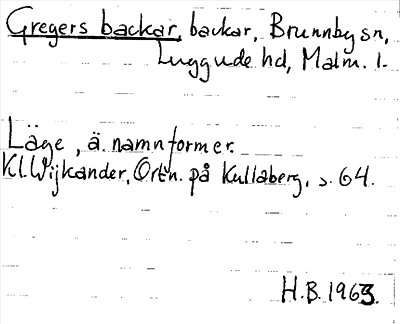 Gregers backar, backar, Brunnby sn,
Luggude hd, Malm. l.
Läge, ä. namnformer.
Kl. Wijkander, Ortn. på Kullaberg, s. 64.
H.B. 1963.